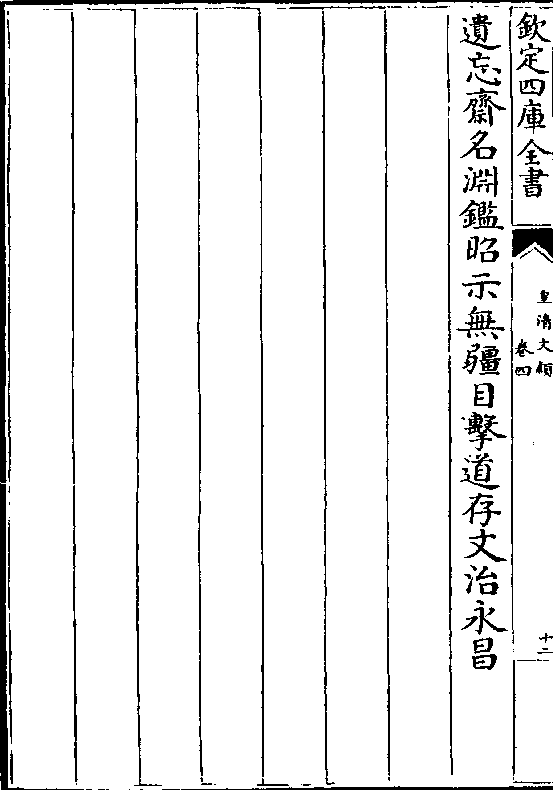 欽定四庫全書
皇清文頴
卷四
十二
遺忘齋名淵鑑昭示無疆目擊道存文治永昌